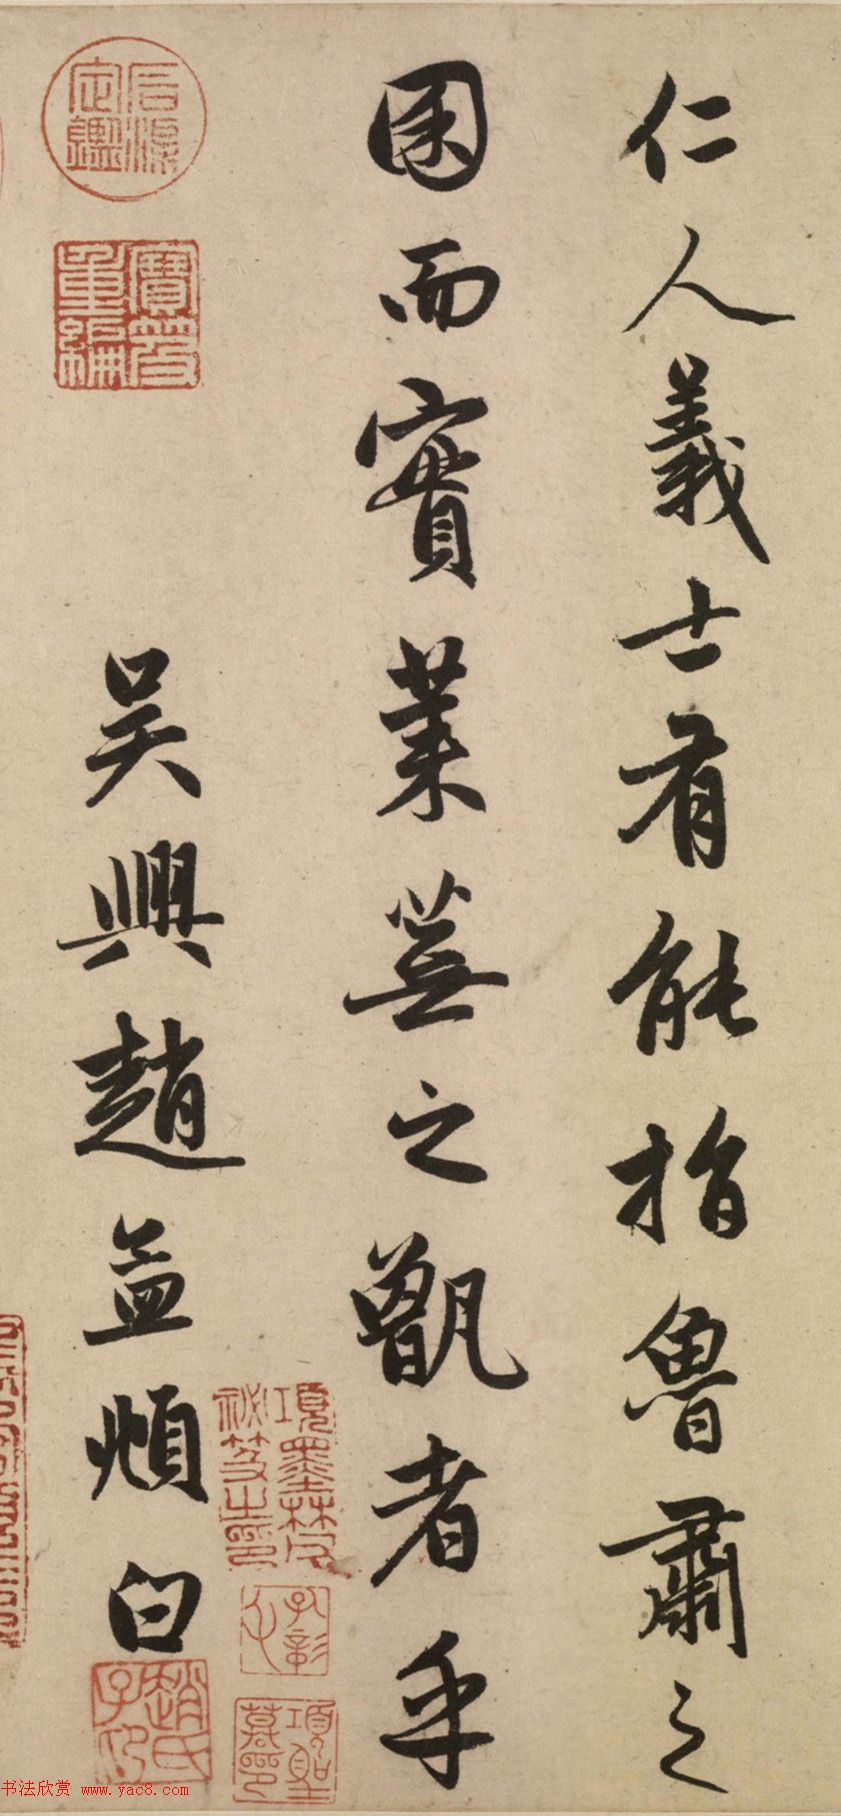 仁人義士有能指魯肅之
囷而實萊蕪之甑者乎
吳興趙孟頫白
石渠定鑑
寶笈重編
項墨林父秘笈之印
趙氏子昂
书法欣赏 www.yac8.com